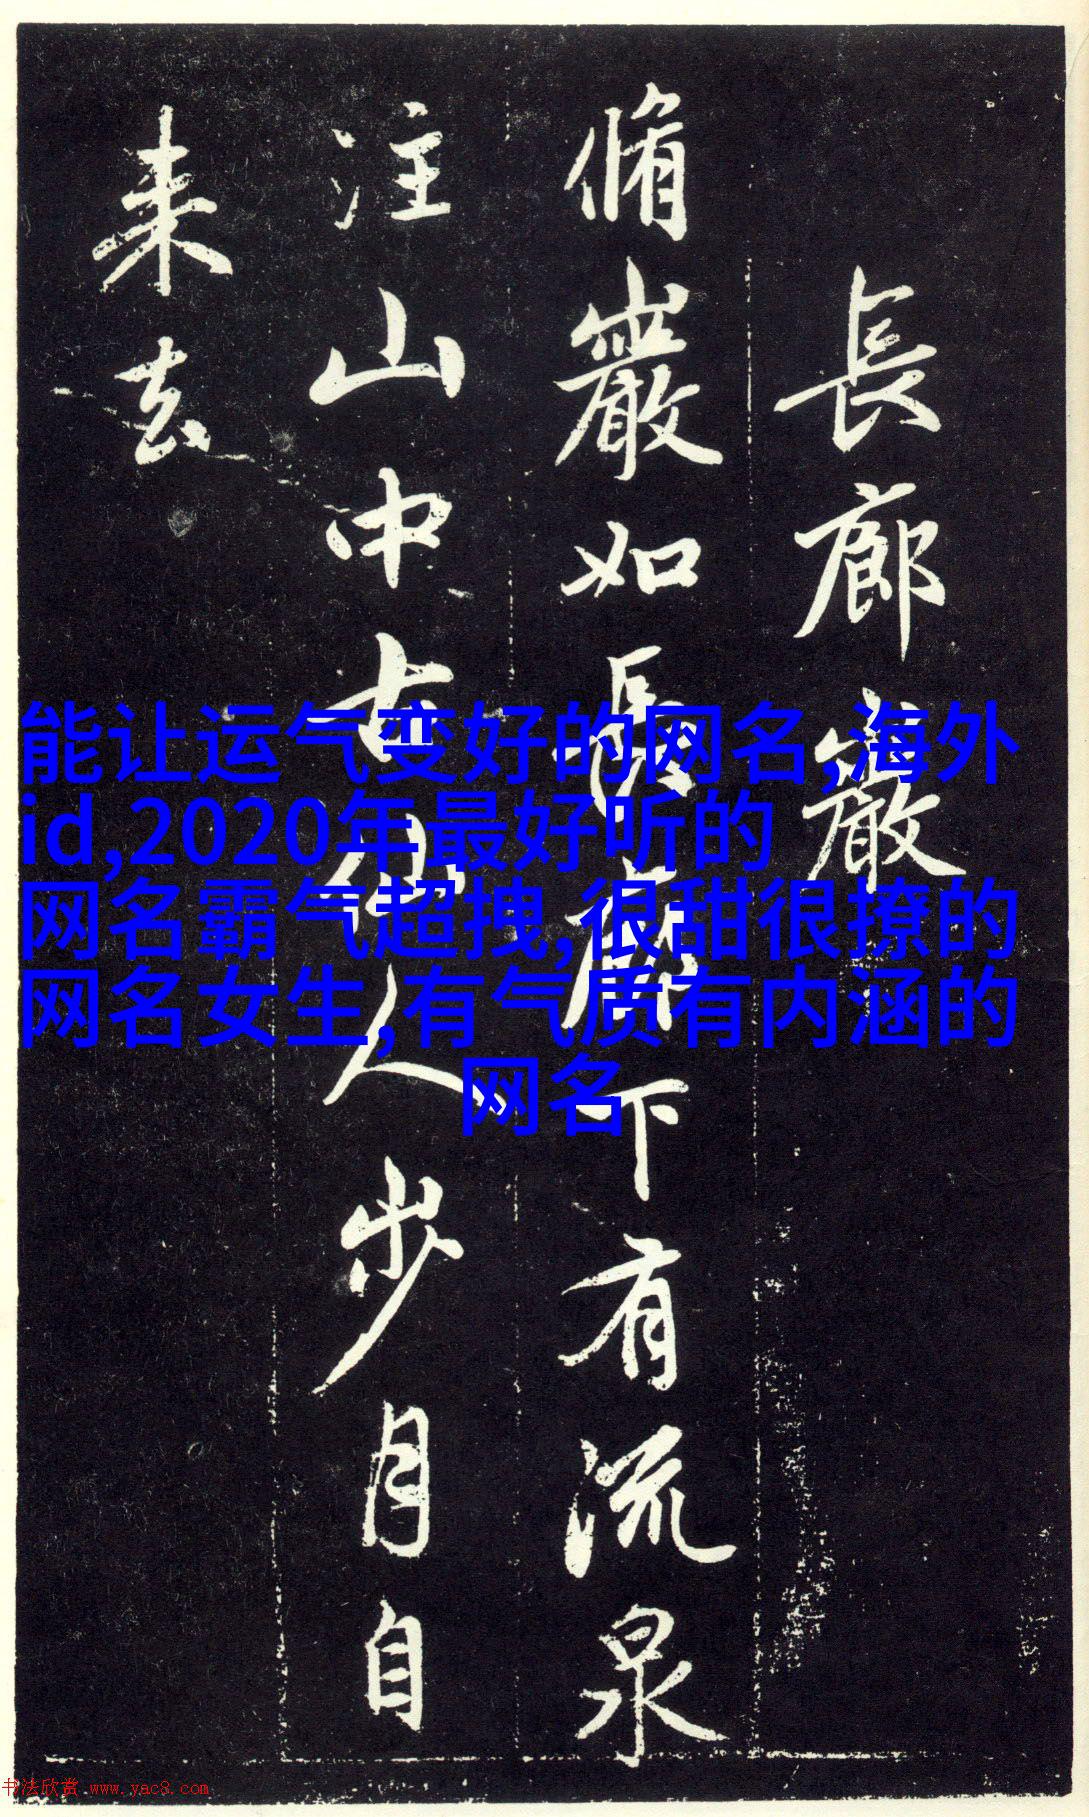 長廊巖
脩巖如長廊下有流泉
注山中古仙人步月自
来去
能让运气变好的网名,海外
id,2020年最好听的
网名霸气超拽,很甜很撩的
网名女生,有气质有内涵的
网名
书法欣赏 www.yac8.com